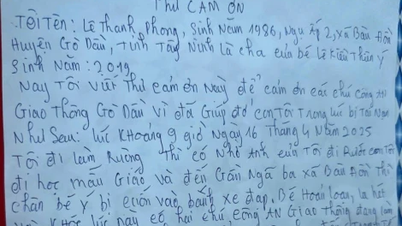 THƯ CẢM ƠN
TÔI TÊN: LÊ Thanh Phong, Sinh Năm 1986, Ngụ Ấp 2, xã Bàu Đồn
Huyện GÒ DẦU, Tỉnh Tây Ninh Là cha của bé Lê Kiều Thân Ý
Sinh Năm: 2019
Nay Tôi viết Thư cảm ơn Này để cảm ơn các chú công an
Giao Thông Gò Dầu vì đã Giúp đỡ con Tôi Trong lúc bị Tai Nạn
Như Sau: lúc Khoảng 9 giờ Ngày 16 Tháng 4 Năm 2025
Tôi đi làm Ruộng Thì có Nhờ Anh của Tôi đi Rước con Tôi
đi học mẫu Giáo và đến Gần Ngã ba xã Bàu Đồn Thì
chân bé Ý bị cuốn vào bánh xe đạp. Bé Hoản loạn, la hét
lúc Này có hai chú công AN Giao Thông đang làm